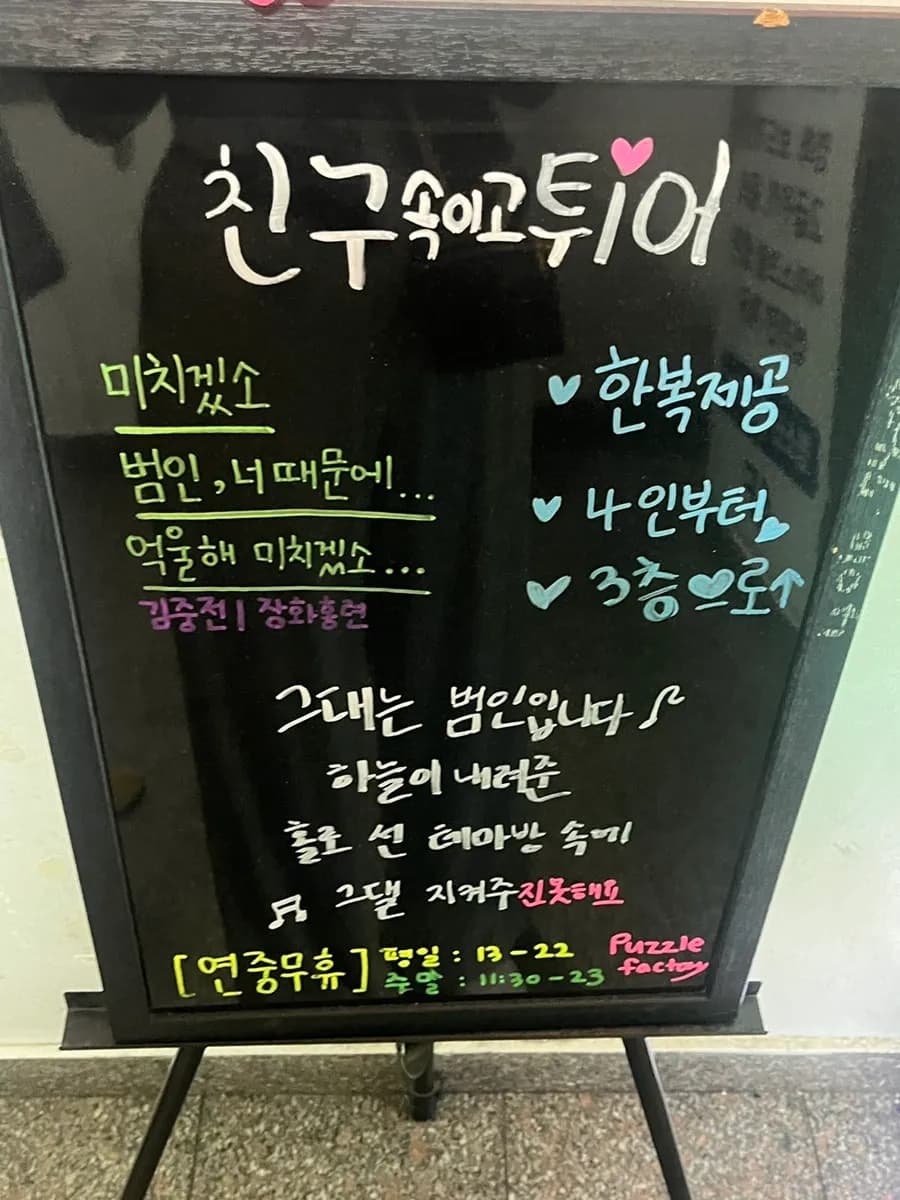 친구속이고튀어
미치겠소
범인, 너 때문에...
억울해 미치겠소...
김중전 | 장화홍련
한복제공
4인부터
3층으로↑
그대는 범인입니다♪
하늘이 내려준
홀로 선 테마방 속에
♬ 그댈 지켜주진못해요
[연중무휴] 평일 : 13-22
주말 : 11:30-23
Puzzle
factory